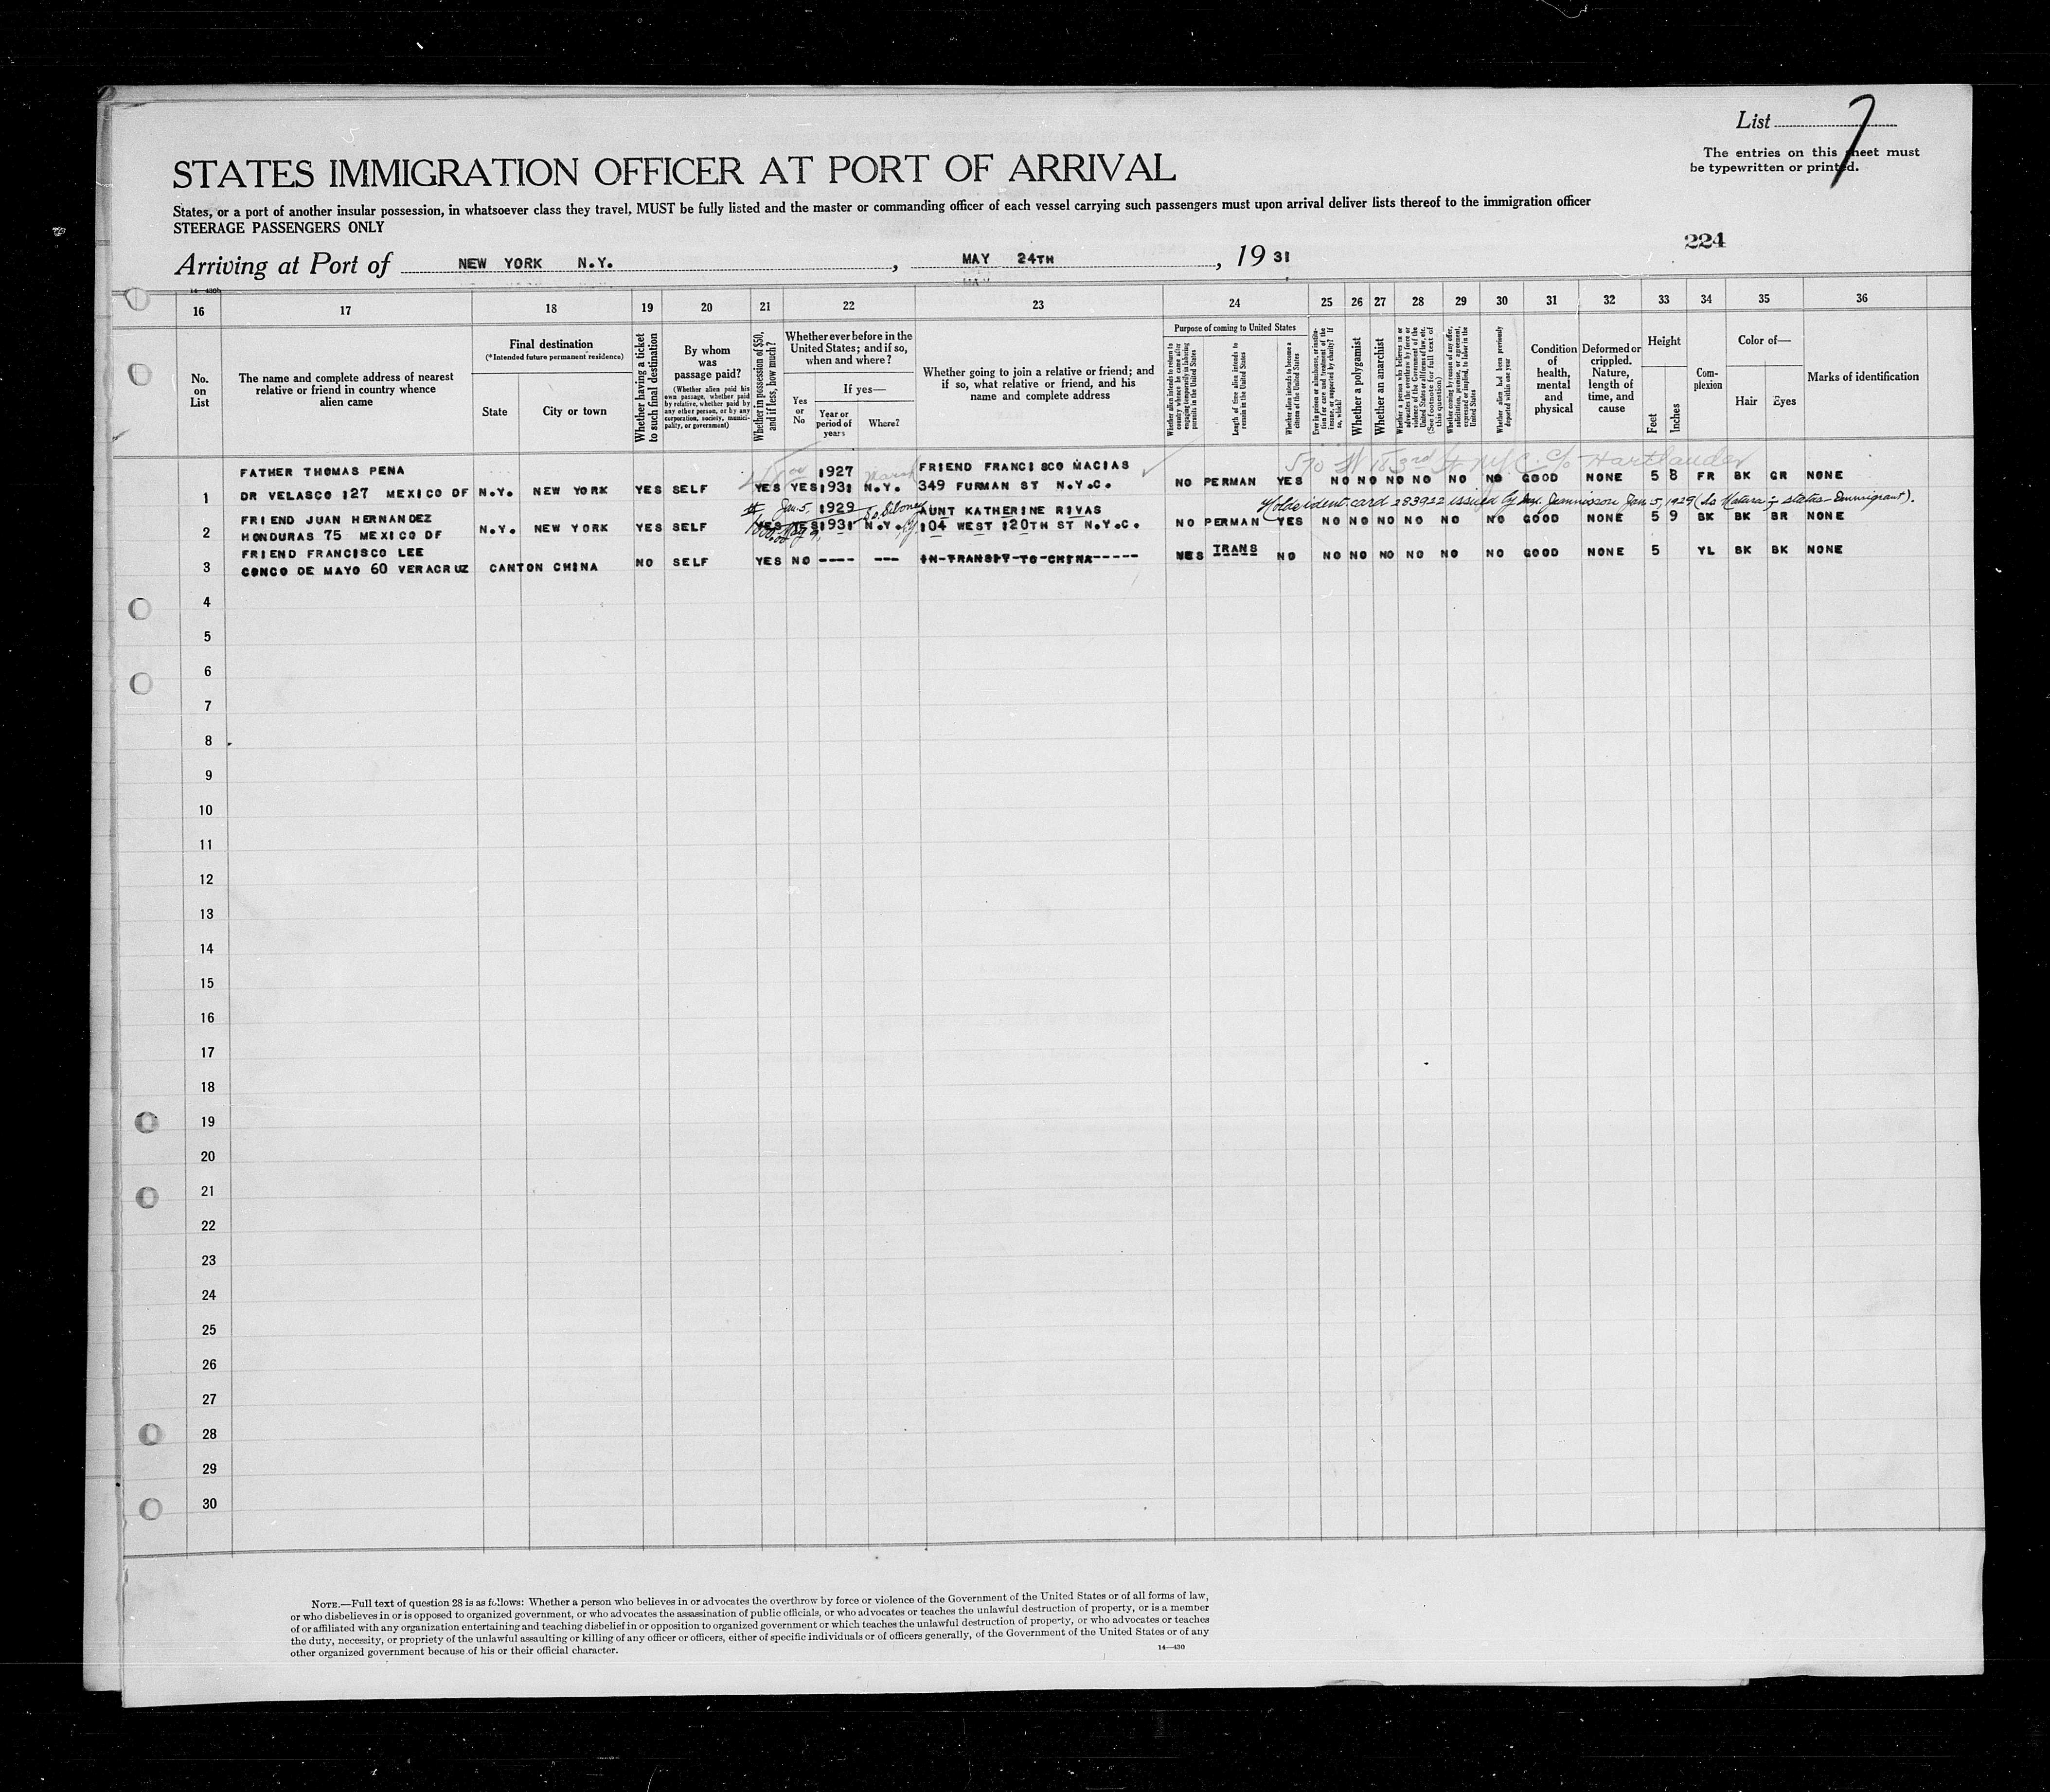 List 7
The entries on this sheet must
be typewritten or printed.
STATES IMMIGRATION OFFICER AT PORT OF ARRIVAL
States, or a port of another insular possession, in whatsoever class they travel, MUST be fully listed and the master or commanding officer of each vessel carrying such passengers must upon arrival deliver lists thereof to the immigration officer
STEERAGE PASSENGERS ONLY
224
Arriving at Port of NEW YORK N.Y. , MAY 24TH , 19 31
16 17 18 19 20 21 22 23 24 25 26 27 28 29 30 31 32 33 34 35 36
No. on List
The name and complete address of nearest relative or friend in country whence alien came
Final destination
(*Intended future permanent residence)
State
City or town
Whether having a ticket to such final destination
By whom was passage paid?
(Whether alien paid his own passage, whether paid by relative, whether paid by any other person, or by any corporation, society, municipality, or government)
Whether in possession of $50, and if less, how much?
Whether ever before in the United States; and if so, when and where?
Yes or No
If yes—
Year or period of years
Where?
Whether going to join a relative or friend; and if so, what relative or friend, and his name and complete address
Purpose of coming to United States
Whether alien intends to return to country whence he came after engaging temporarily in laboring pursuits in the United States
Length of time alien intends to remain in the United States
Whether alien intends to become a citizen of the United States
Ever in prison or almshouse, or institution for care and treatment of the insane, or supported by charity? If so, which?
Whether a polygamist
Whether an anarchist
Whether a person who believes in or advocates the overthrow by force or violence of the Government of the United States or all forms of law, etc. (See footnote for full text of this question)
Whether coming by reason of any offer, solicitation, promise, or agreement, expressed or implied, to labor in the United States
Whether alien had been previously deported within one year
Condition of health, mental and physical
Deformed or crippled. Nature, length of time, and cause
Height
Feet
Inches
Complexion
Color of—
Hair
Eyes
Marks of identification
FATHER THOMAS PENA 1927 FRIEND FRANCISCO MACIAS 570 W 183rd St NYC c/o Hartlander
1 DR VELASCO 127 MEXICO DF N.Y. NEW YORK YES SELF YES YES 1931 N.Y. 349 FURMAN ST N.Y.C. NO PERMAN YES NO NO NO NO NO NO GOOD NONE 5 8 FR BK GR NONE
Holds ident. card 283922 issued by Jan. 5, 1929
FRIEND JUAN HERNANDEZ Jan. 5, 1929 AUNT KATHERINE RIVAS
2 HONDURAS 75 MEXICO DF N.Y. NEW YORK YES SELF YES YES 1931 N.Y. 104 WEST 120TH ST N.Y.C. NO PERMAN YES NO NO NO NO NO NO GOOD NONE 5 9 BK BK BR NONE
FRIEND FRANCISCO LEE
3 CONCO DE MAYO 60 VERACRUZ CANTON CHINA NO SELF YES NO ---- --- IN-TRANSIT-TO-CHINA----- TRANS NO NO NO NO NO NO NO GOOD NONE 5 YL BK BK NONE
4
5
6
7
8
9
10
11
12
13
14
15
16
17
18
19
20
21
22
23
24
25
26
27
28
29
30
NOTE.—Full text of question 28 is as follows: Whether a person who believes in or advocates the overthrow by force or violence of the Government of the United States or of all forms of law,
or who disbelieves in or is opposed to organized government, or who advocates the assassination of public officials, or who advocates or teaches the unlawful destruction of property, or is a member
of or affiliated with any organization entertaining and teaching disbelief in or opposition to organized government or which teaches the unlawful destruction of property, or who advocates or teaches
the duty, necessity, or propriety of the unlawful assaulting or killing of any officer or officers, either of specific individuals or of officers generally, of the Government of the United States or of any
other organized government because of his or their official character.
14—430